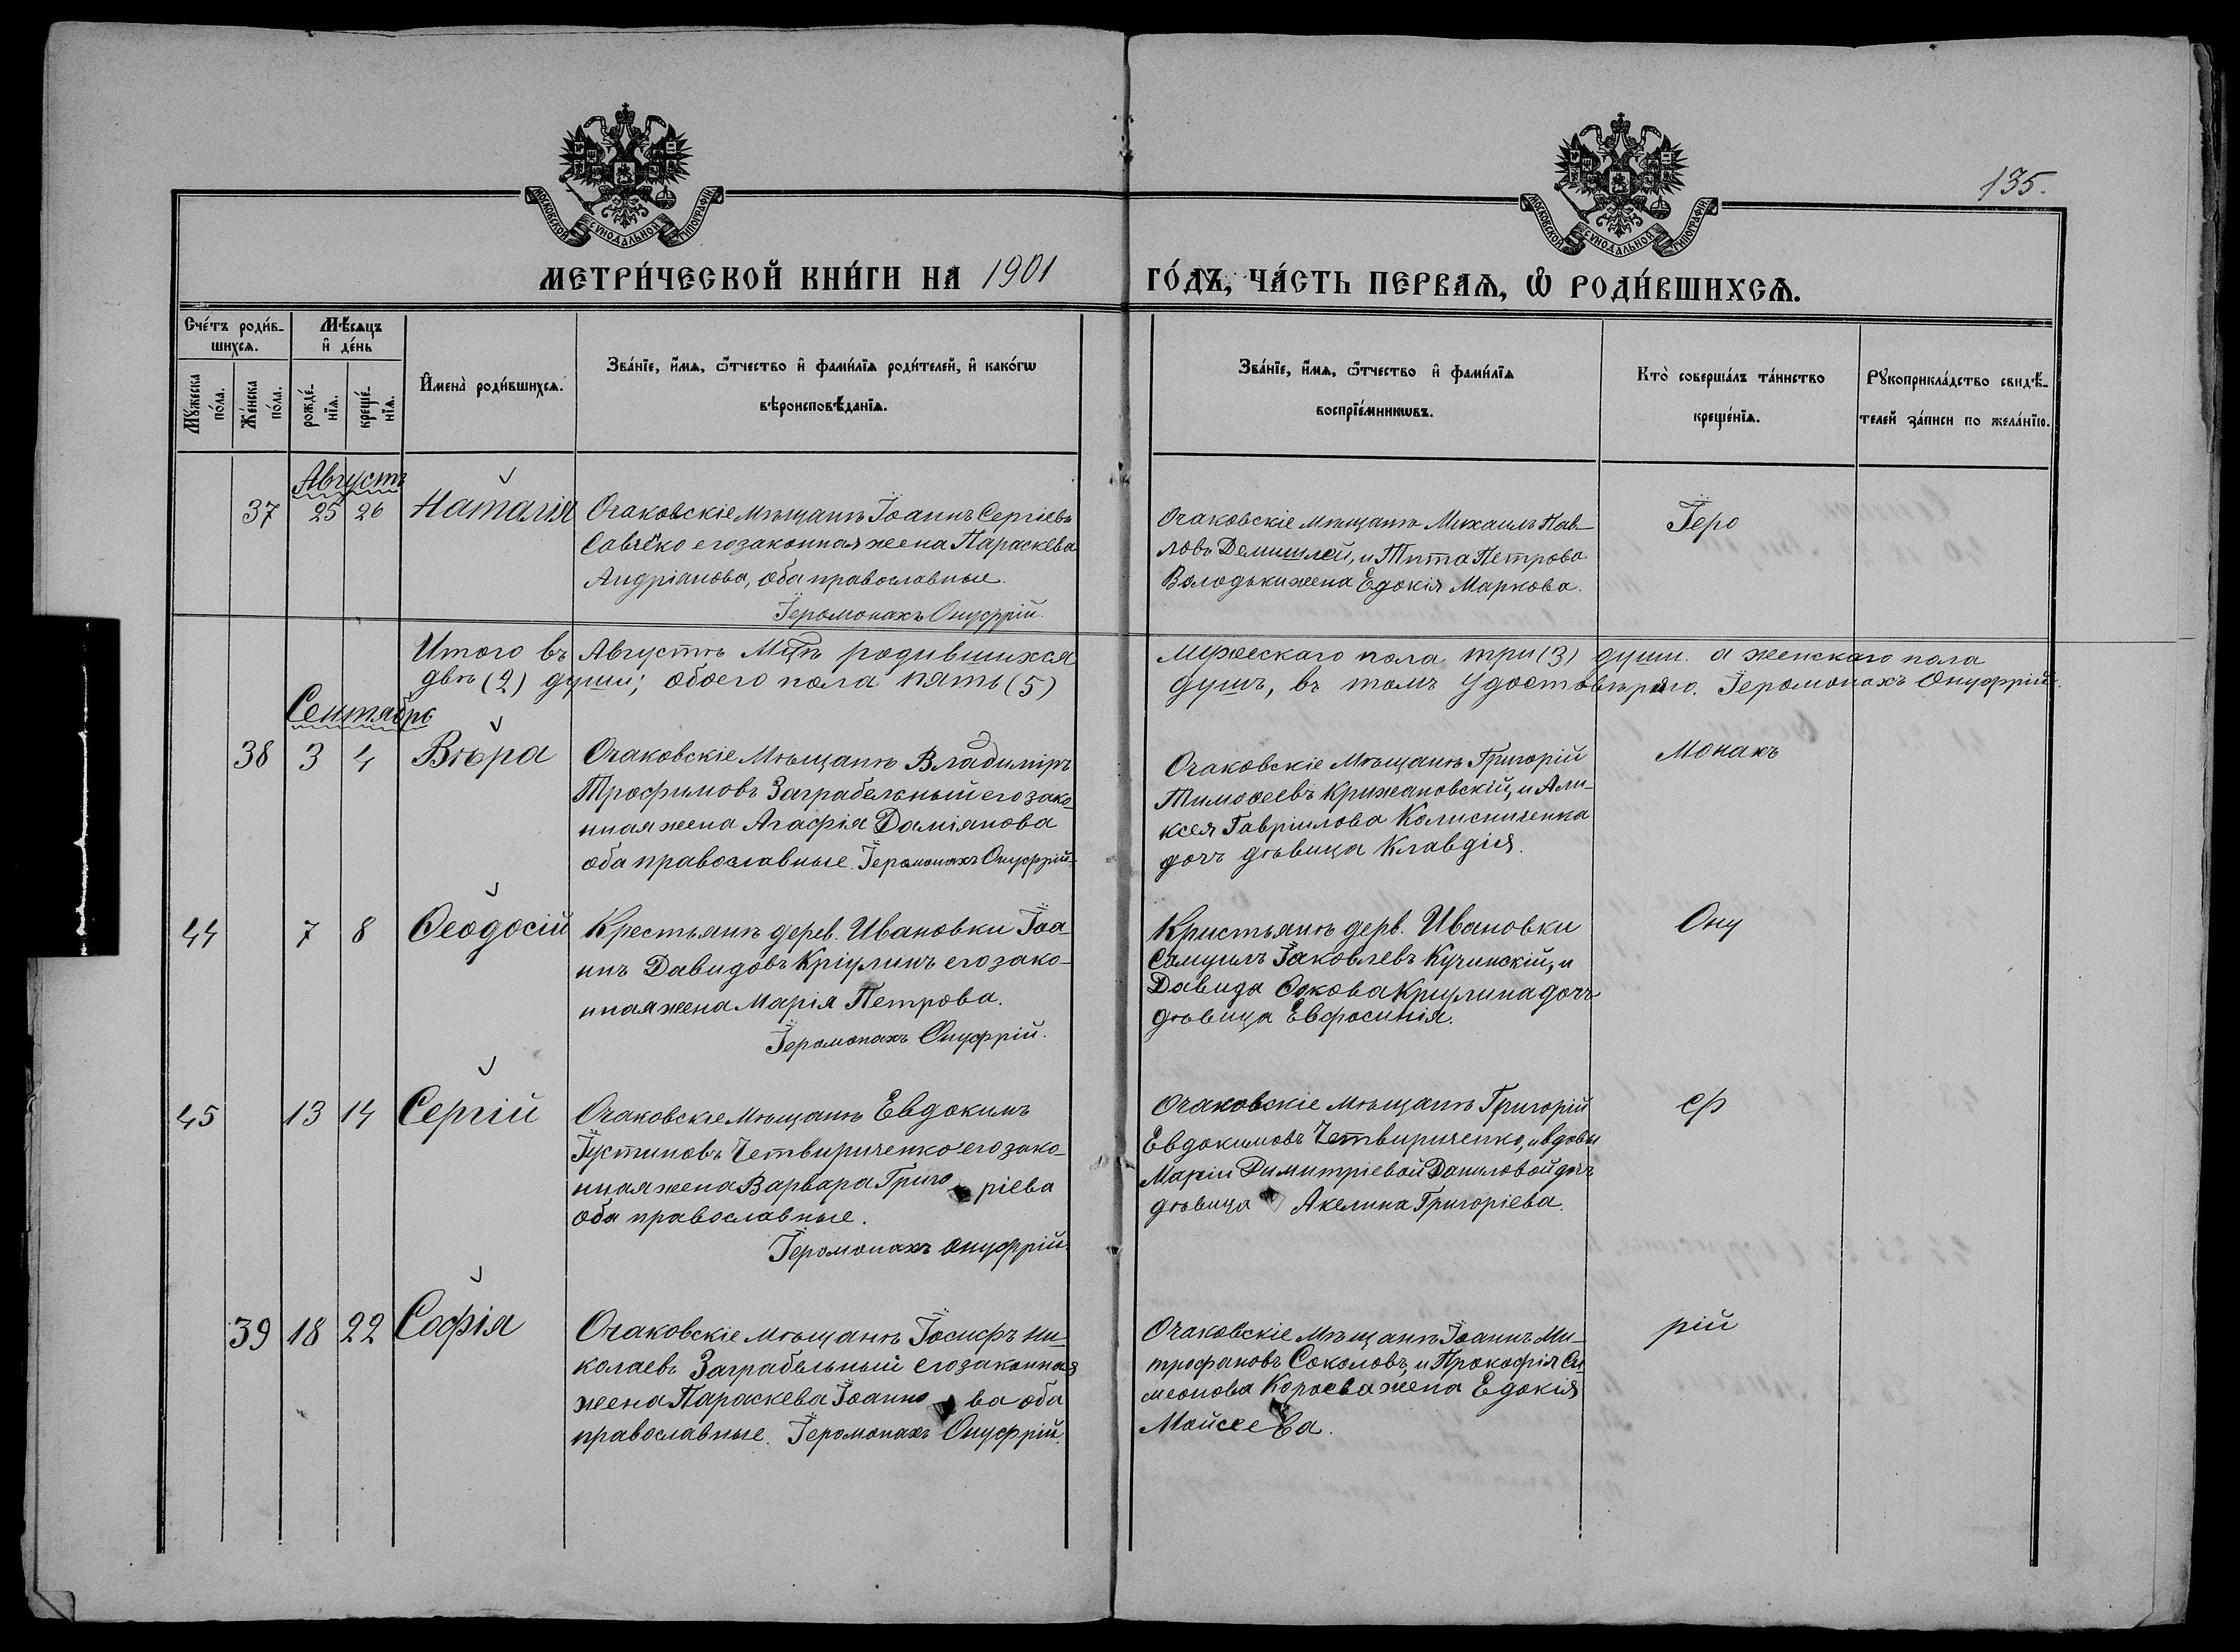 135.
МОСКОВСКОЙ СУНОДАЛЬНОЙ ТИПОГРАФІИ
МОСКОВСКОЙ СУНОДАЛЬНОЙ ТИПОГРАФІИ
МЕТРИ́ЧЕСКОЙ КНИ́ГИ НА 1901
ГО́ДЪ, ЧА́СТЬ ПЕРВАѦ, Ѡ РОДИ́ВШИХСѦ.
Сче́тъ роди́в-
шихсѧ.
Мѣ́сѧцъ
и҆ де́нь
Мꙋ́жеска
по́ла.
Же́нска
по́ла.
рожде́-
нїѧ.
креще́-
нїѧ.
И҆мена̀ роди́вшихсѧ.
Зва́нїе, и҆́мѧ, ѻ҆́тчество и҆ фами́лїѧ роди́телей, и҆ како́гѡ
вѣроисповѣ́данїѧ.
Зва́нїе, и҆́мѧ, ѻ҆́тчество и҆ фами́лїѧ
воспрїе́мникѡвъ.
Кто̀ соверша́лъ та́инство
креще́нїѧ.
Рꙋкоприкла́дство свидѣ́-
телей за́писи по жела́нїю.
Августъ
37 25 26 Наталія
Очаковскіе мѣщанѣ Іоаннъ Сергіевъ
Савчёко его законная жена Параскева
Андріанова, оба православные.
Іеромонахъ Онуфрій.
Очаковскіе мѣщанѣ Михаилъ Пав-
ловъ Демишлей, и Тита Петрова
Володьки жена Едокія Маркова.
Іеро
Итого въ Августѣ Мцѣ родившихся мужескаго пола три (3) души. а женскаго пола
двѣ (2) души; обоего пола пять (5) душъ, въ томъ удостовѣряю. Іеромонахъ Онуфрій.
Сентябрь
38 3 4 Вѣра
Очаковскіе Мѣщанѣ Владиміръ
Трофимовъ Заграбельный его зако-
нная жена Агафія Даміянова
оба православные. Іеромонахъ Онуфрій.
Очаковскіе Мѣщанѣ Григорій
Тимоѳеевъ Крижановскій, и Али-
ксея Гавріилова Колисниченка
дочъ дѣвица Клавдія.
Монахъ
44 7 8 Ѳеодосій
Крестьянѣ дерев. Ивановки Іоа-
ннъ Давидовъ Кріулинъ его зако-
нная жена Марія Петрова.
Іеромонахъ Онуфрій.
Кристьянѣ дерв. Ивановки
Самуилъ Іаковлевъ Кучинскій, и
Давида Ѳокова Криулина дочъ
дѣвица Евфосинія.
Ону
45 13 14 Сергій
Очаковскіе Мѣщанѣ Евдокимъ
Іустиновъ Четвириченко его зако-
нная жена Варвара Григо ріева
оба православные.
Іеромонахъ Онуфрій
Очаковскіе мѣщанѣ Григорій
Евдокимовъ Четвириченко, и вдовы
Маріи Димитріевой Даниловой дочъ
дѣвица Акелина Григоріева.
ф
39 18 22 Софія
Очаковскіе мѣщанѣ Іосифъ Ни-
колаевъ Заграбельный его законная
жена Параскева Іоанно ва оба
православные. Іеромонахъ Онуфрій.
Очаковскіе мѣщанѣ Іоаннъ Ми-
трофановъ Соколовъ, и Прокофія Си
меонова Короева жена Едокія
Мойсеева.
рій